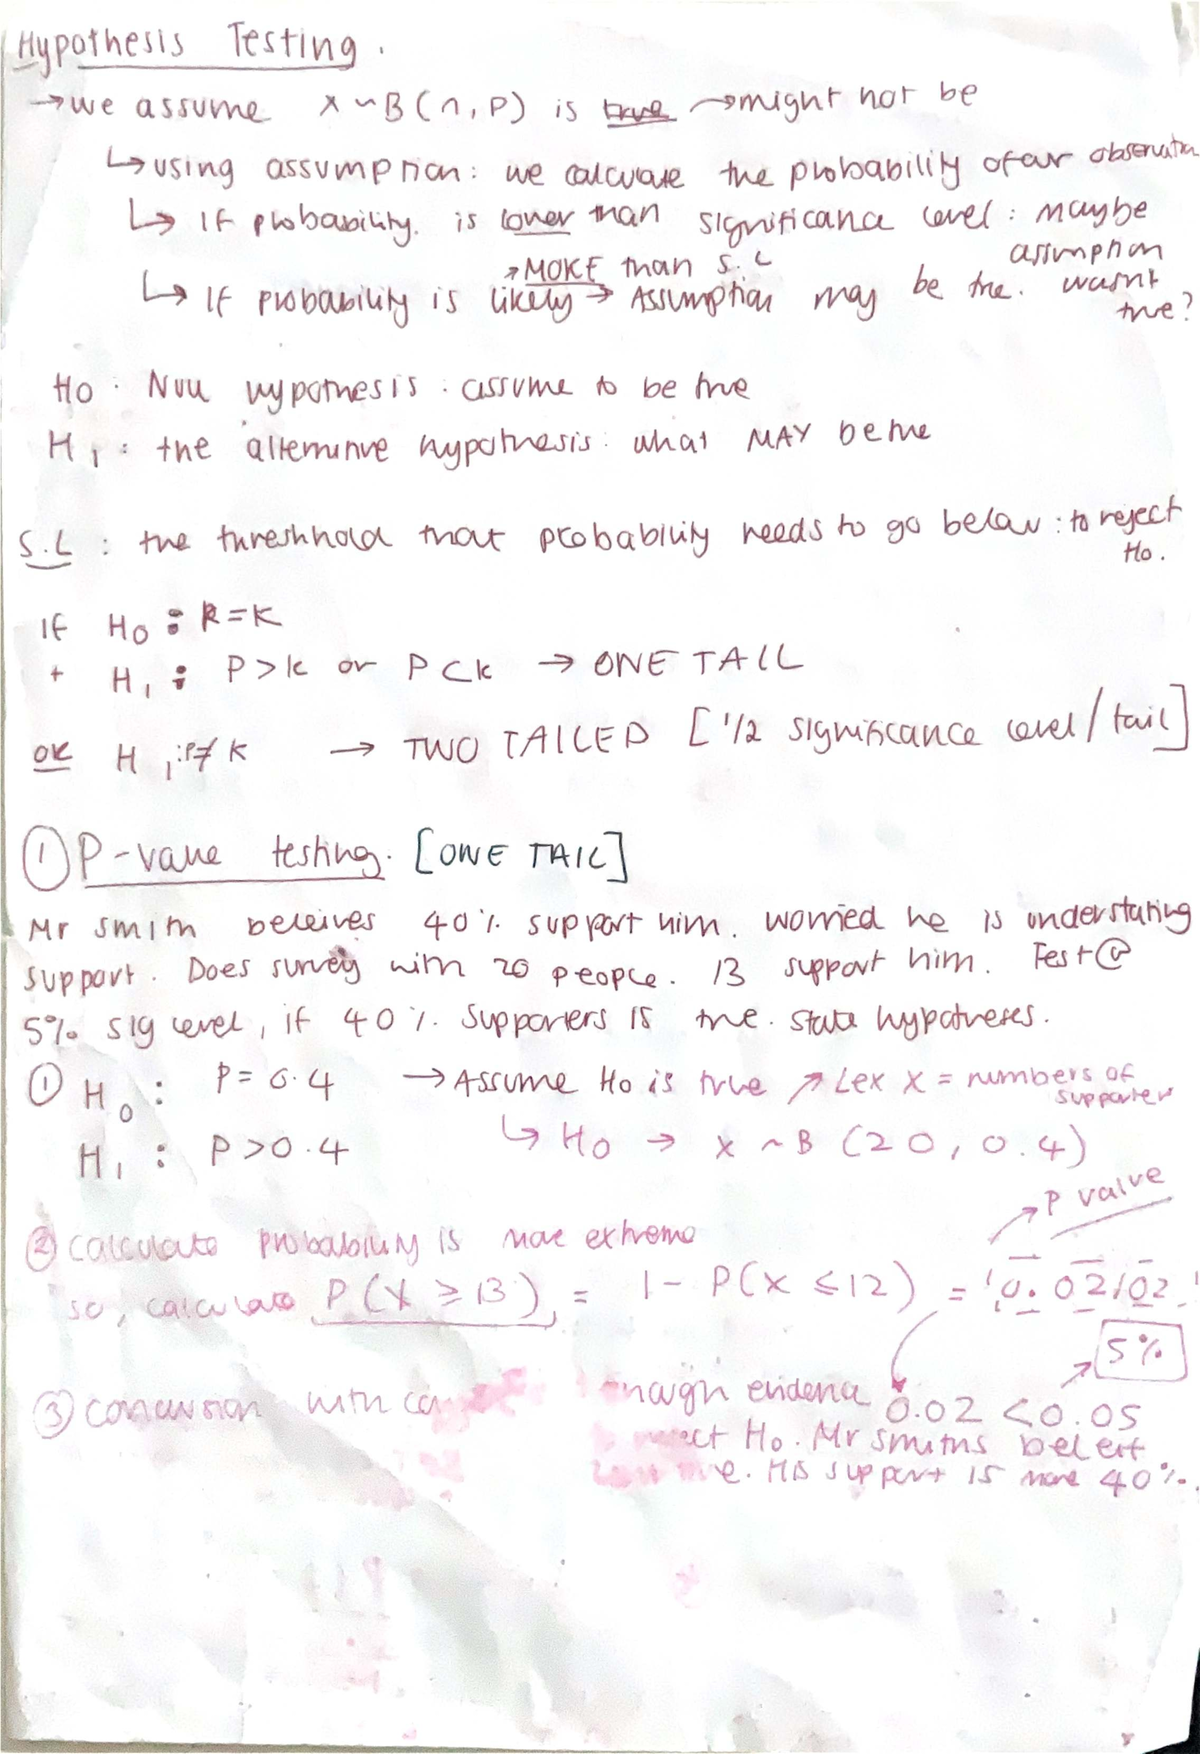 Hypothesis Testing.
→ we assume X ~ B(n, P) is true → might not be
↳ using assumption: we calculate the probability of our observation
↳ If probability. is lower than significance level: maybe assumption wasnt true?
↳ If probability is likely → Assumption may be true.
↗ MORE than S.L
H0: Null hypothesis: assume to be true
H1: the alternative hypothesis: what MAY be true
S.L: the threshhold that probability needs to go below: to reject H0.
If H0: P=K
+ H1: P>k or P<k → ONE TAIL
OR H1: P≠K → TWO TAILED [1/2 significance level/tail]
① P-value testing. [ONE TAIL]
Mr Smith beleives 40% support him. worried he is understating
support. Does survey with 20 people. 13 support him. Test @
5% sig level, if 40% supporters is true. State hypotheses.
① H0: P=0.4 → Assume H0 is true ↗ Let X = numbers of supporters
H1: P>0.4 ↳ H0 → X ~ B(20, 0.4)
↗ P value
② calculate probability is more extreme
so, calculate P(X ≥ 13) = 1 - P(X ≤ 12) = 0.02102
5%
③ conclusion with enough evidence 0.02 < 0.05
H0. Mr smiths beleif
His support is more 40%.